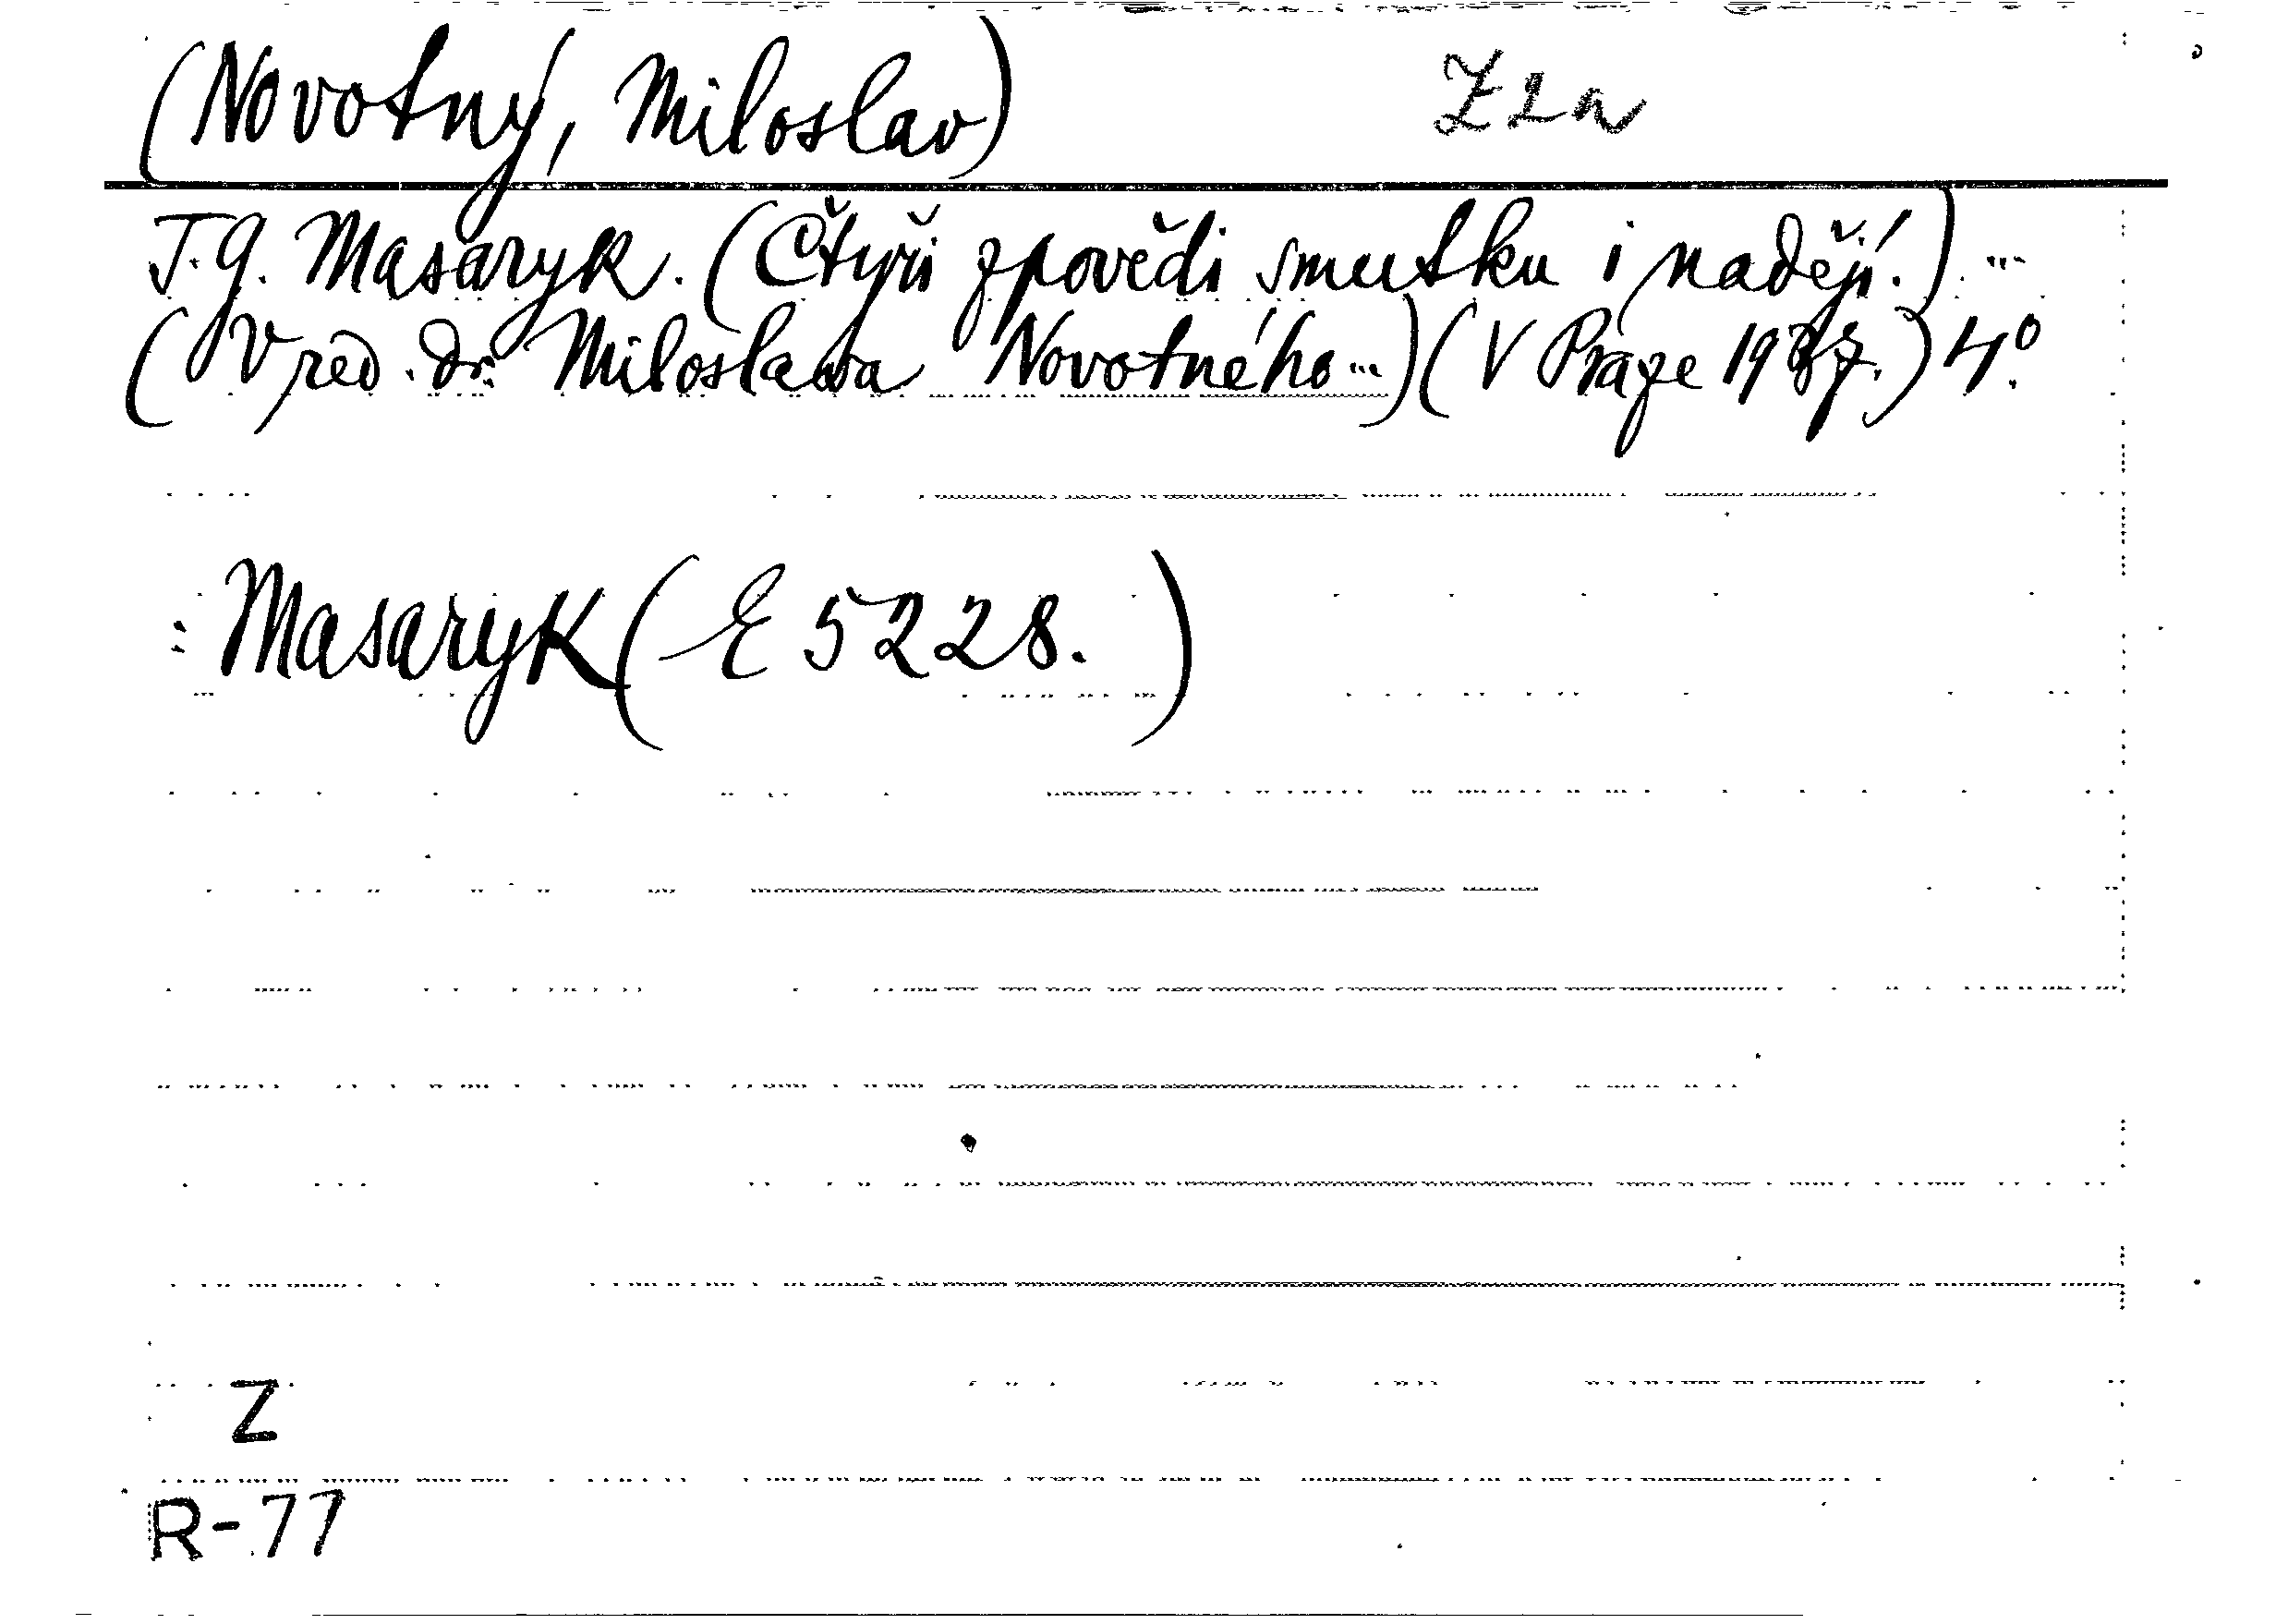 (Novotný, Miloslav)
T. G. Masaryk. (Čtyři zpovědi smutku i naději.) ...
(V red. dr. Miloslava Novotného...) (V Praze 1937.) 4°.
: Masaryk (E 5228.)
Z
R-77